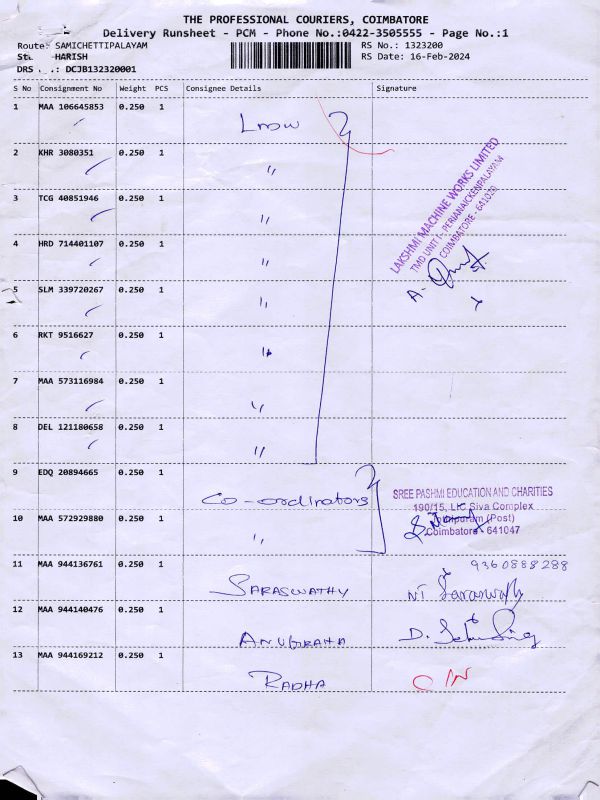 THE PROFESSIONAL COURIERS, COIMBATORE
Delivery Runsheet - PCM - Phone No.:0422-3505555 - Page No.:1
Route: SAMICHETTIPALAYAM
RS No.: 1323200
HARISH
RS Date: 16-Feb-2024
DRS : DCJB132320001
S No Consignment No Weight PCS Consignee Details Signature
1 MAA 106645853 0.250 1
2 KHR 3080351 0.250 1 "
3 TCG 40851946 0.250 1 "
4 HRD 714401107 0.250 1 "
5 SLM 339720267 0.250 1 "
6 RKT 9516627 0.250 1 "
7 MAA 573116984 0.250 1 "
8 DEL 121180658 0.250 1 "
LAKSHMI MACHINE WORKS LIMITED
TMD UNIT I- PERIANAICKENPALAYAM
COIMBATORE - 641020
9 EDQ 20894665 0.250 1 Co-ordinators
10 MAA 572929880 0.250 1 "
SREE PASHMI EDUCATION AND CHARITIES
190/15, LIC Siva Complex
(Post)
Coimbatore - 641047
11 MAA 944136761 0.250 1 SARASWATHY 9360888288
NT Saraswathy
12 MAA 944140476 0.250 1 ANUGRAHA D.
13 MAA 944169212 0.250 1 RADHA